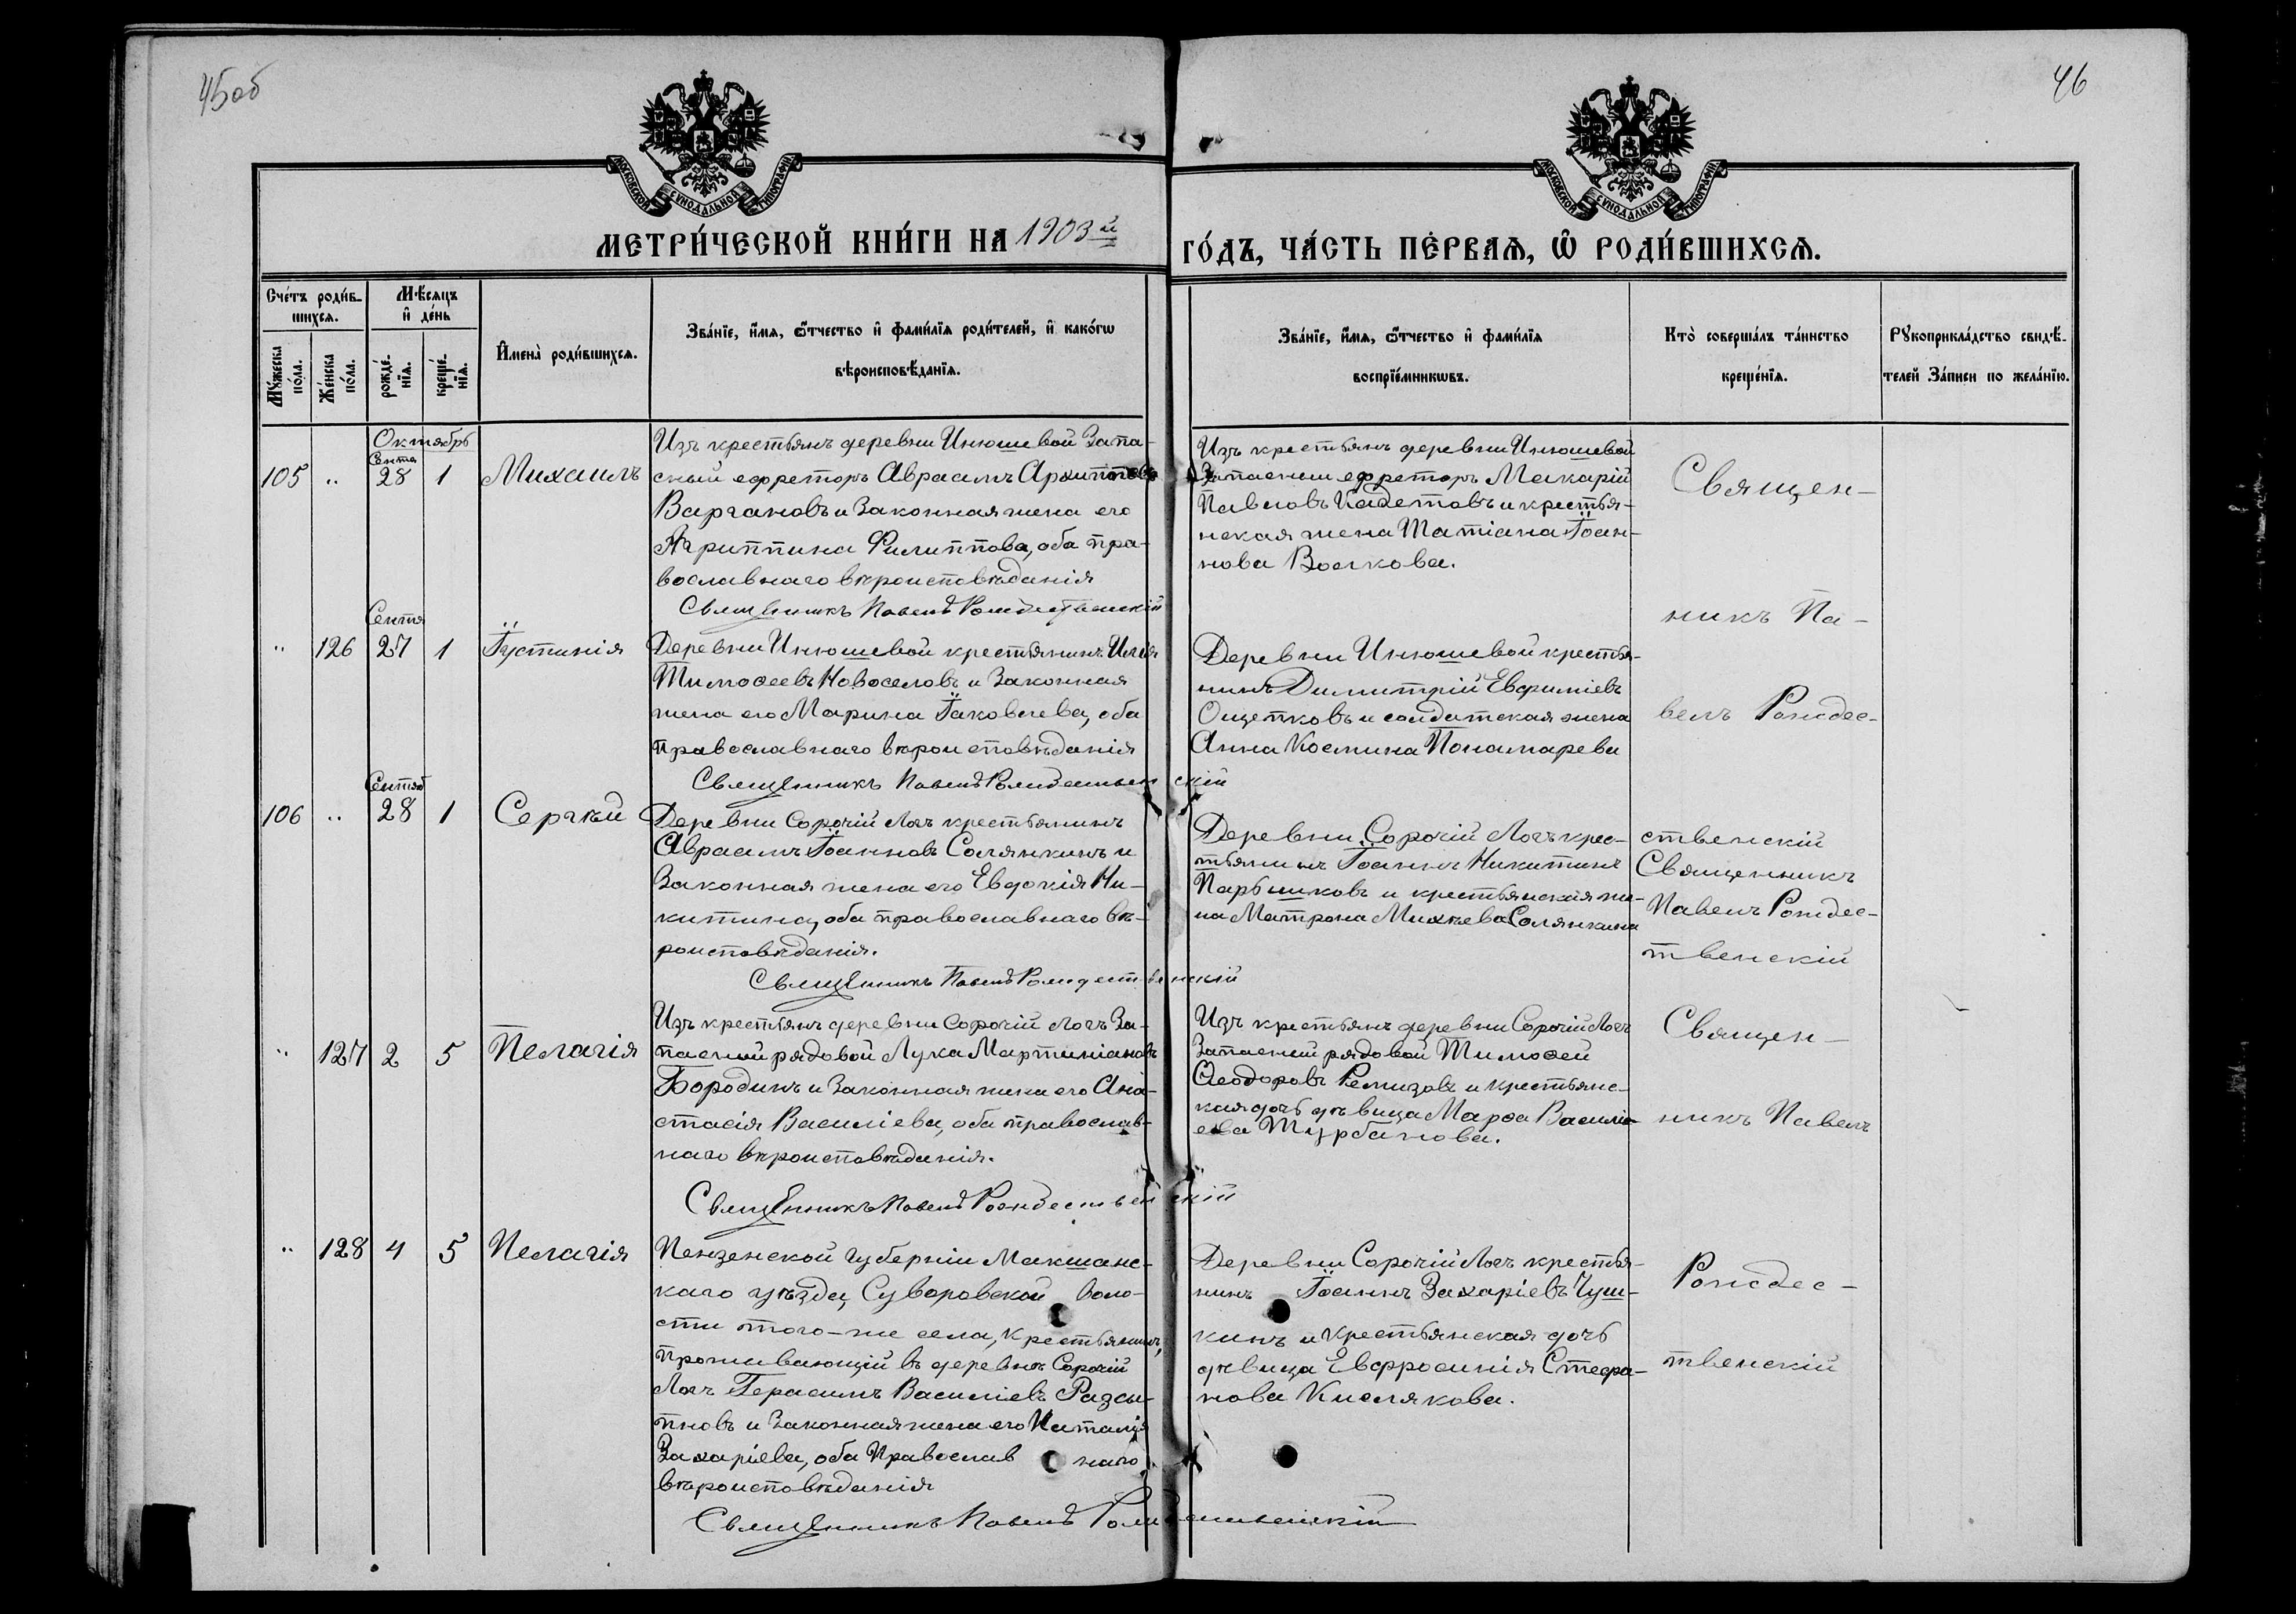 45об
46
МОСКОВСКОЙ СѴНОДАЛЬНОЙ ТИПОГРАФІИ.
МОСКОВСКОЙ СѴНОДАЛЬНОЙ ТИПОГРАФІИ.
МЕТРИ́ЧЕСКОЙ КНИ́ГИ НА 1903й
ГО́ДЪ, ЧА́СТЬ ПЕ́РВАѦ, Ѡ҆ РОДИ́ВШИХСѦ.
Сче́тъ роди́в-
шихсѧ.
Мѣ́сѧцъ
и҆ де́нь
Мꙋ́жеска
по́ла.
Же́нска
по́ла.
рожде́-
нїѧ.
креще́-
нїѧ.
И҆мена̀ роди́вшихсѧ.
Зва́нїе, и҆́мѧ, ѻ҆́тчество и҆ фами́лїѧ роди́телей, и҆ како́гѡ
вѣроисповѣ́данїѧ.
Зва́нїе, и҆́мѧ, ѻ҆́тчество и҆ фами́лїѧ
воспрїе́мникѡвъ.
Кто̀ соверша́лъ та́инство
креще́нїѧ.
Рꙋкоприкла́дство свидѣ́-
телей за́писи по жела́нїю.
Октябрь
Сентя
105 .. 28 1 Михаилъ
Изъ крестьянъ деревни Инюшевой запа-
сный ефреторъ Авраамъ Архиповъ
Варгановъ и законная жена его
Агриппина Филиппова, оба пра-
вославнаго вѣроисповѣданія
Священникъ Павелъ Рождественскій
Изъ крестьянъ деревни Инюшевой
Запасный ефреторъ Макарій
Павловъ Кадетовъ и крестья-
нская жена Татіана Іоан-
нова Волкова.
Священ-
никъ Па-
велъ Рождес-
ственскій
Сентя
.. 126 27 1 Іустинія
Деревни Инюшевой крестьянинъ Илія
Тимоѳеевъ Новоселовъ и законная
жена его Марина Іаковлева, оба
православнаго вѣроисповѣданія
Священникъ Павелъ Рождественскій
Деревни Инюшевой крестья-
нинъ Димитрій Евфиміевъ
Ощепковъ и солдатская жена
Анна Космина Понамарева
Сентяб
106 .. 28 1 Сергѣй
Деревни Сорочій Логъ крестьянинъ
Авраамъ Іоанновъ Солянкинъ и
законная жена его Евдокія Ни-
китина, оба православнаго вѣ-
роисповѣданія.
Священникъ Павелъ Рождественскій
Деревни Сорочій Логъ крес-
тьянинъ Іоаннъ Никитинъ
Паршиковъ и крестьянская же-
на Матрона Михѣева Солянкина
Священникъ
Павелъ Рождес-
твенскій
.. 127 2 5 Пелагія
Изъ крестьянъ деревни Сорочій Логъ За-
пасный рядовой Лука Мартиніановъ
Бородинъ и законная жена его Ана-
стасія Василіева, оба православ-
наго вѣроисповѣданія.
Священникъ Павелъ Рождественскій
Изъ крестьянъ деревни Сорочій Логъ
Запасный рядовой Тимоѳей
Ѳеодоровъ Ремизовъ и крестьянс-
кая дочь дѣвица Марѳа Василі-
ева Турбанова.
Священ-
никъ Павелъ
Рождес-
твенскій
.. 128 4 5 Пелагія
Пензенской губерніи Макшанс-
каго уѣзда, Суворовской воло-
сти того-же села, крестьянинъ,
проживающій въ деревнѣ Сорочій
Логъ Герасимъ Василіевъ Разсы-
пновъ и законная жена его Наталія
Захаріева, оба православнаго
вѣроисповѣданія
Священникъ Павелъ Рождественскій
Деревни Сорочій Логъ крестья-
нинъ Іоаннъ Захаріевъ Чуш-
кинъ и крестьянская дочь
дѣвица Евфросинія Стефа-
нова Кислякова.